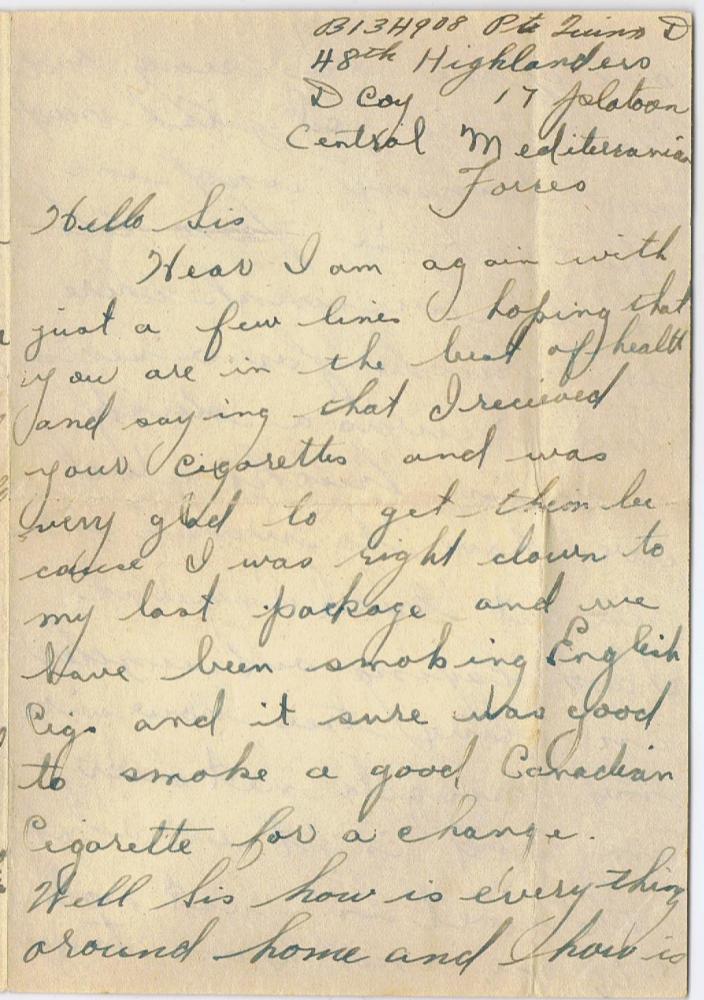 B134908 Pte Quinn D
48th Highlanders
D Coy 17 platoon
Central Mediterranian
Forces
Hello Sis
Hear I am again with
just a few lines hoping that
you are in the best of health
and saying that I recieved
your cigarettes and was
very glad to get them be
cause I was right down to
my last package and we
have been smoking English
Cigs and it sure was good
to smoke a good Canadian
Cigarette for a change.
Well Sis how is everything
around home and how is